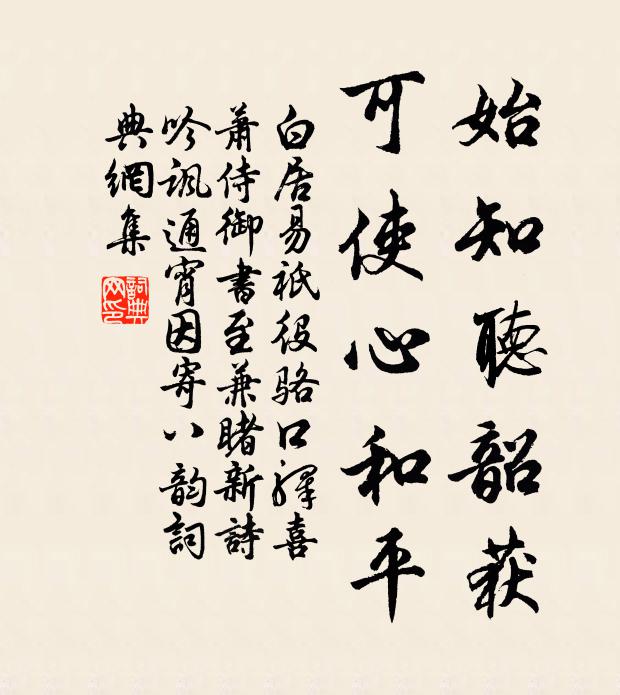 始知聽韶濩
可使心和平
白居易祇役駱口驛喜
蕭侍御書至兼睹新詩
吟諷通宵因寄八韵詞
典網集
詞典
网印